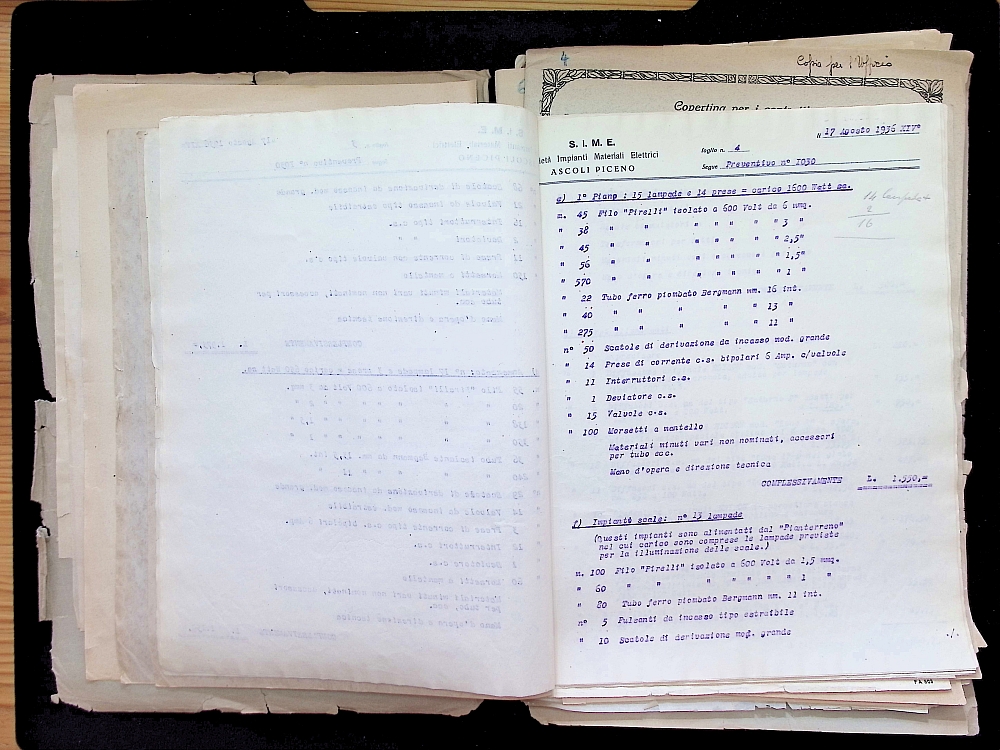 4
Copia per l'Ufficio
Copertina per i
S. I. M. E.
età Impianti Materiali Elettrici
ASCOLI PICENO
foglio n. 4
Segue Preventivo n° 1030
"17 Agosto 1936 XIV°
e) 1° Piano : 15 lampade e 14 prese = carico 1600 Watt sa.
14
2
16
m. 45 Filo "Pirelli" isolato a 600 Volt da 6 mmq.
" 38 " " " " " " " 3 "
" 45 " " " " " " " 2,5"
" 56 " " " " " " " 1,5"
" 570 " " " " " " " 1 "
" 22 Tubo ferro piombato Bergmann mm. 16 int.
" 40 " " " " " 13 "
" 275 " " " " " 11 "
n° 50 Scatole di derivazione da incasso mod. grande
" 14 Prese di corrente c.s. bipolari 6 Amp. c/valvole
" 11 Interruttori c.s.
" 1 Deviatore c.s.
" 15 Valvole c.s.
" 100 Morsetti a mantello
Materiali minuti vari non nominati, accessori
per tubo ecc.
Mano d'opera e direzione tecnica
COMPLESSIVAMENTE L. 1.550,=
f) Impianto scale: n° 13 lampade
(Questi impianti sono alimentati dal "Pianterreno"
nel cui carico sono comprese le lampade previste
per la illuminazione delle scale.)
m. 100 Filo "Pirelli" isolato a 600 Volt da 1,5 mmq.
" 60 " " " " " " " 1 "
" 80 Tubo ferro piombato Bergmann mm. 11 int.
n° 5 Pulsanti da incasso tipo estraibile
" 10 Scatole di derivazione mod. grande
./.